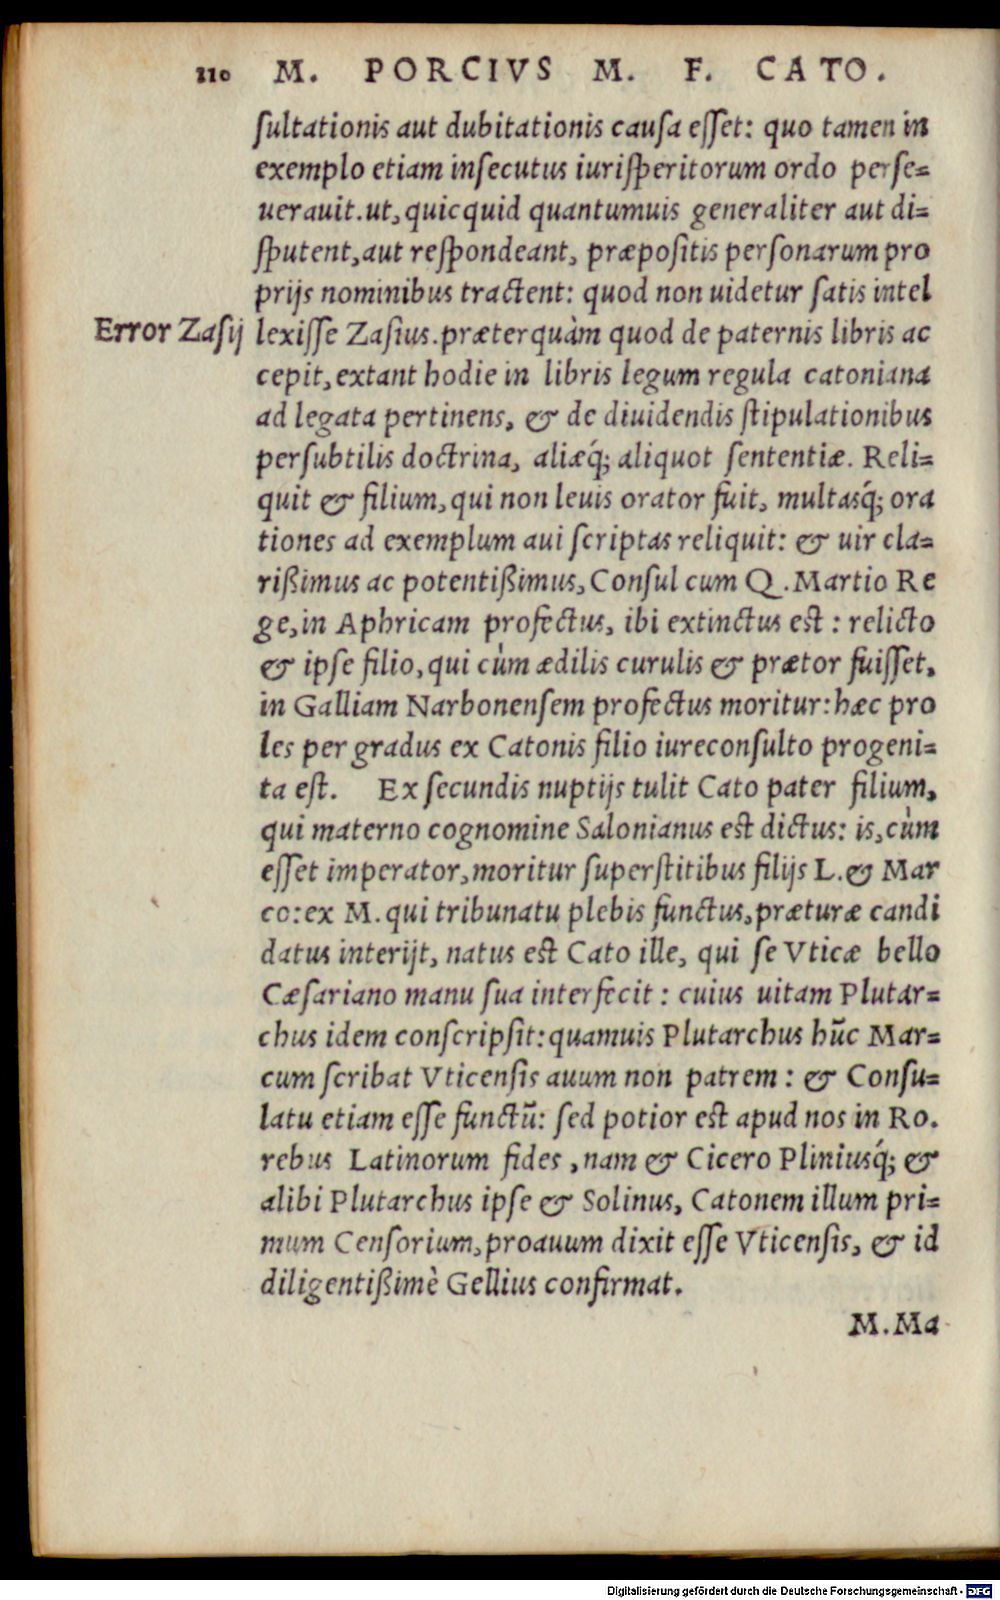 110 M. PORCIVS M. F. CATO.
sultationis aut dubitationis causa esset: quo tamen in
exemplo etiam insecutus iurisperitorum ordo perse=
uerauit. ut, quicquid quantumuis generaliter aut di=
sputent, aut respondeant, præpositis personarum pro
prijs nominibus tractent: quod non uidetur satis intel
Error Zasij
lexisse Zasius. præterquàm quod de paternis libris ac
cepit, extant hodie in libris legum regula catoniana
ad legata pertinens, & de diuidendis stipulationibus
persubtilis doctrina, aliæq́; aliquot sententiæ. Reli=
quit & filium, qui non leuis orator fuit, multasq́; ora
tiones ad exemplum aui scriptas reliquit: & uir cla=
rißimus ac potentißimus, Consul cum Q. Martio Re
ge, in Aphricam profectus, ibi extinctus est: relicto
& ipse filio, qui cùm ædilis curulis & prætor fuisset,
in Galliam Narbonensem profectus moritur: hæc pro
les per gradus ex Catonis filio iureconsulto progeni=
ta est. Ex secundis nuptijs tulit Cato pater filium,
qui materno cognomine Salonianus est dictus: is, cùm
esset imperator, moritur superstitibus filijs L. & Mar
co: ex M. qui tribunatu plebis functus, præturæ candi
datus interijt, natus est Cato ille, qui se Vticæ bello
Cæsariano manu sua interfecit: cuius uitam Plutar=
chus idem conscripsit: quamuis Plutarchus hūc Mar=
cum scribat Vticensis auum non patrem: & Consu=
latu etiam esse functū: sed potior est apud nos in Ro.
rebus Latinorum fides, nam & Cicero Pliniusq́; &
alibi Plutarchus ipse & Solinus, Catonem illum pri=
mum Censorium, proauum dixit esse Vticensis, & id
diligentißimè Gellius confirmat.
M. Ma
Digitalisierung gefördert durch die Deutsche Forschungsgemeinschaft - DFG